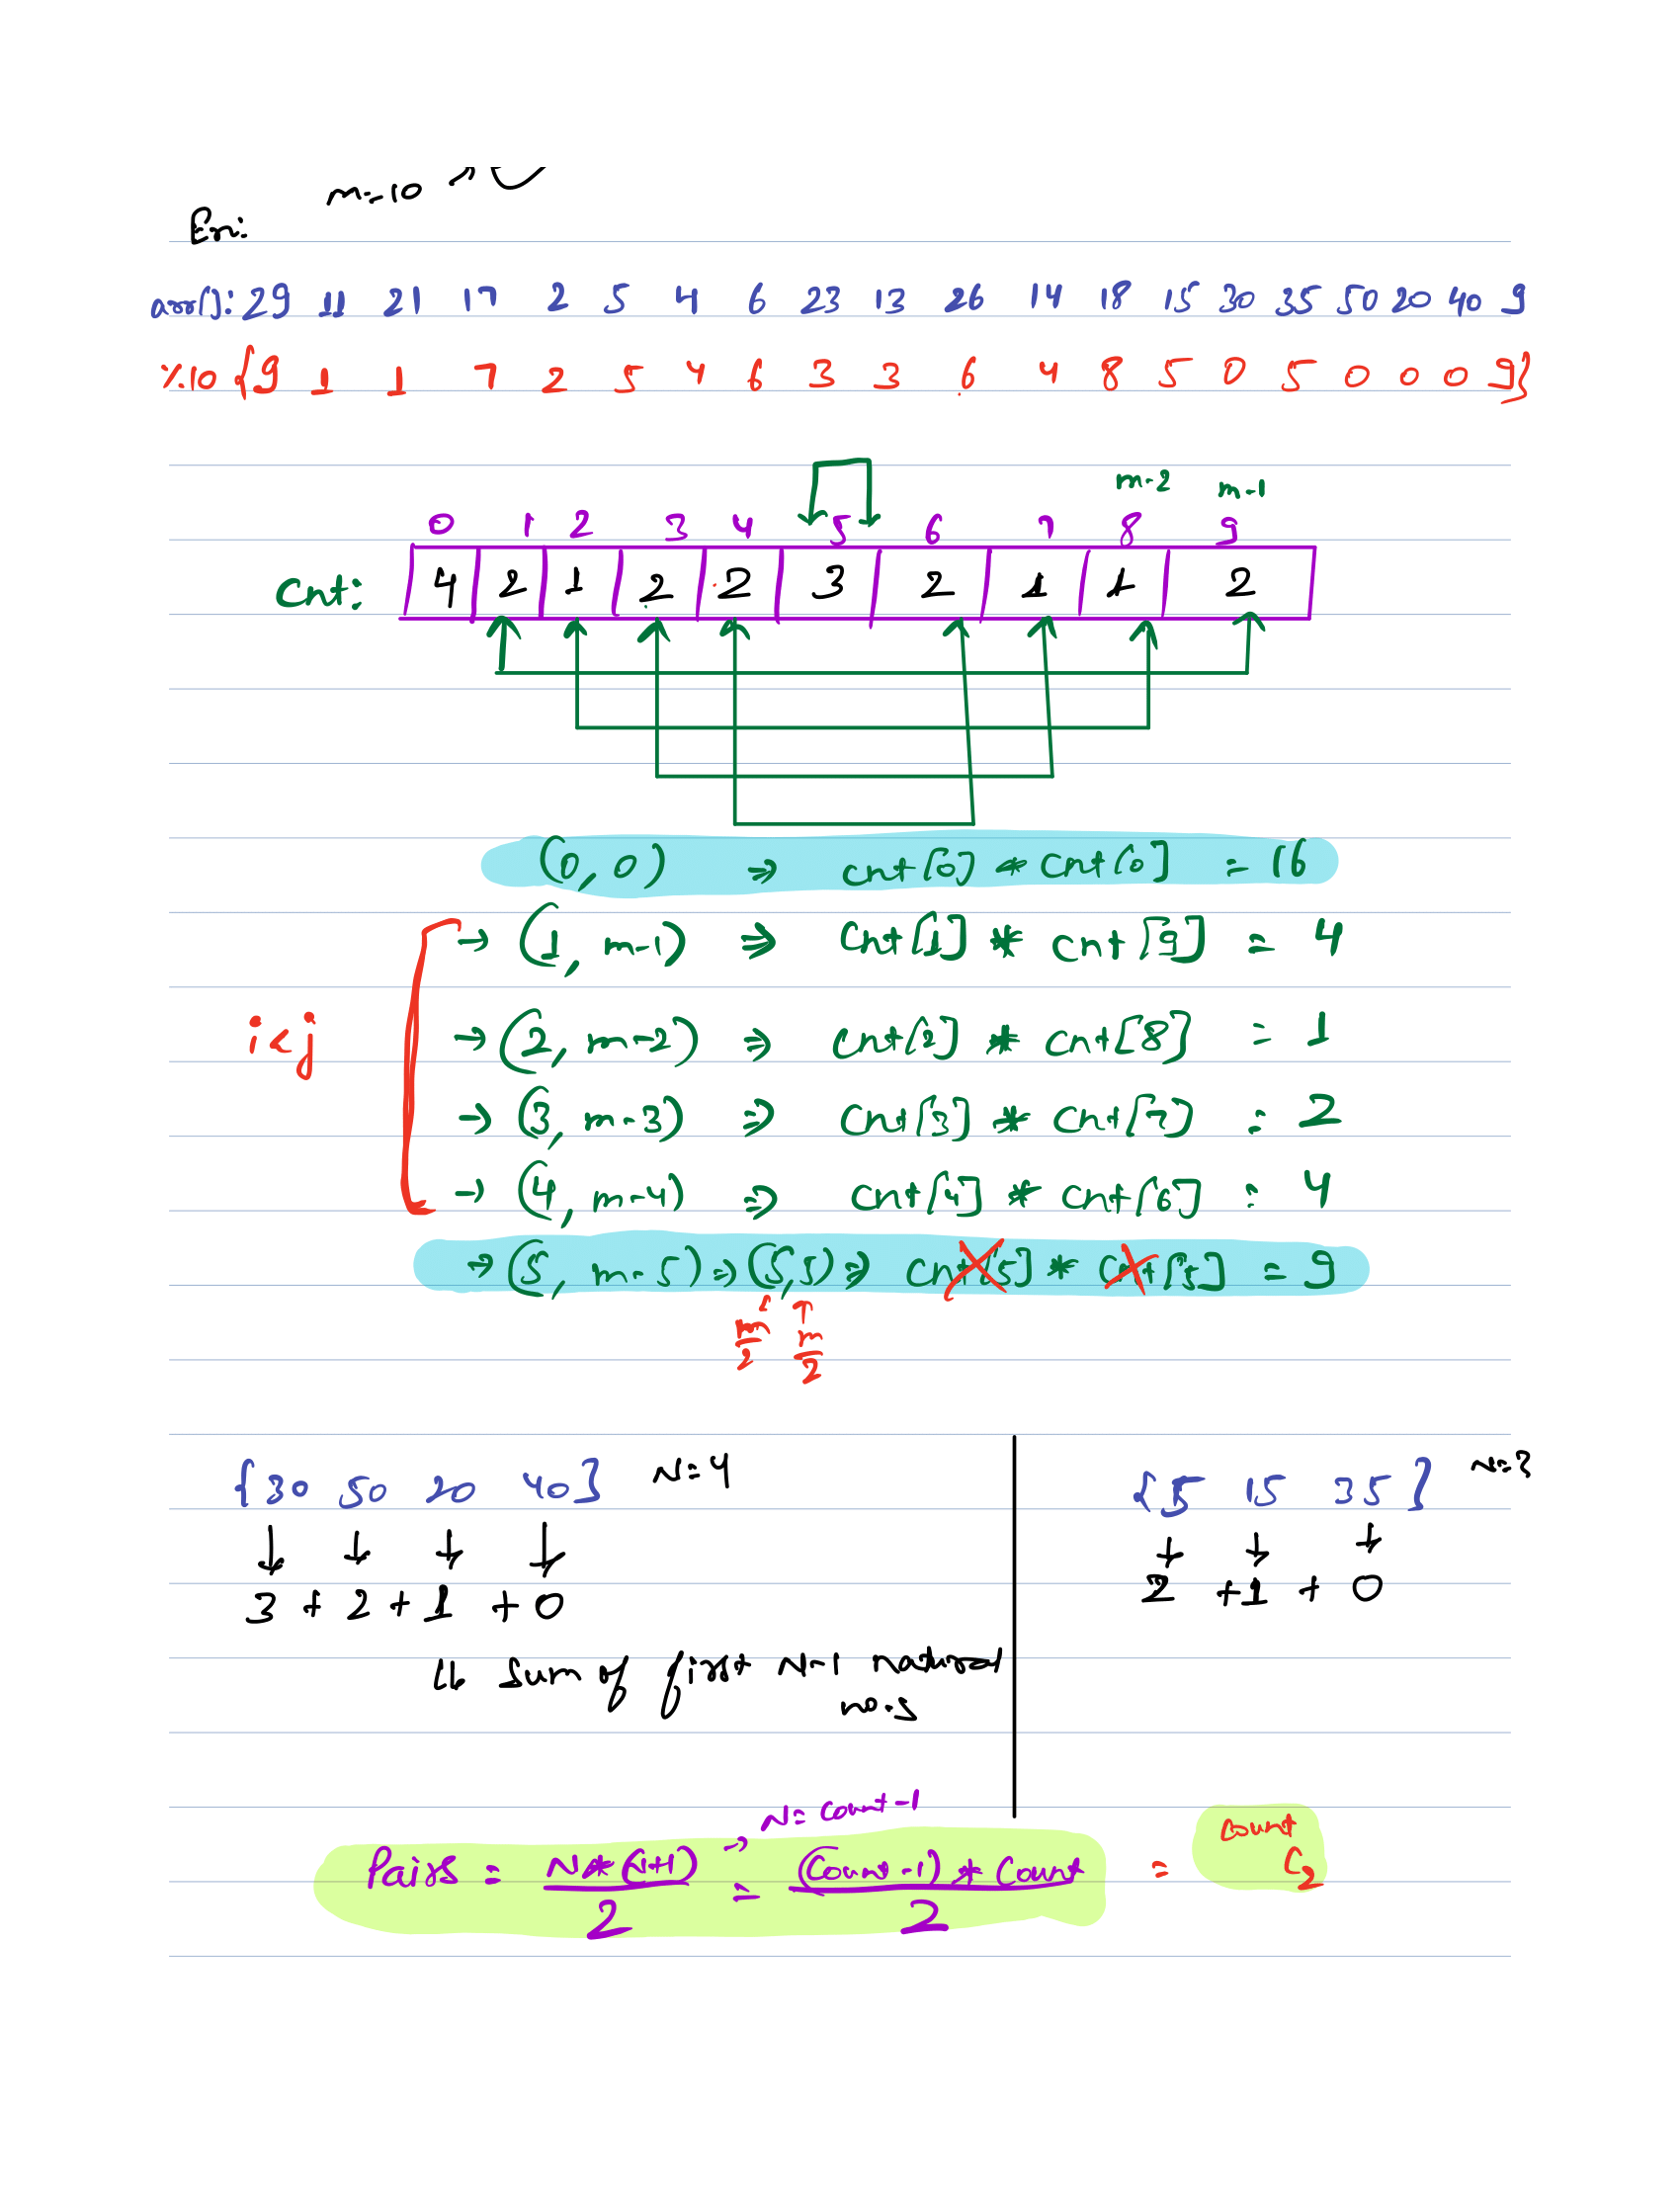 m=10
Ex:
arr[]: 29 11 21 17 2 5 4 6 23 13 26 14 18 15 30 35 50 20 40 9
%10 {9 1 1 7 2 5 4 6 3 3 6 4 8 5 0 5 0 0 0 9}
m-2 m-1
0 1 2 3 4 5 6 7 8 9
Cnt: 4 2 1 2 2 3 2 1 1 2
(0, 0) ⇒ cnt[0] * cnt[0] = 16
→ (1, m-1) ⇒ Cnt[1] * cnt[9] = 4
i<j
→ (2, m-2) ⇒ cnt[2] * cnt[8] = 1
→ (3, m-3) ⇒ cnt[3] * cnt[7] = 2
→ (4, m-4) ⇒ cnt[4] * cnt[6] = 4
→ (5, m-5) ⇒ (5,5) ⇒ cnt[5] * cnt[5] = 9
m/2 m/2
{30 50 20 40} N=4
3 + 2 + 1 + 0
↳ Sum of first N-1 natural
no.s
{5 15 35} N=3
2 + 1 + 0
N=count-1
Pairs = N*(N+1)/2 = (Count-1) * Count/2 = count C2